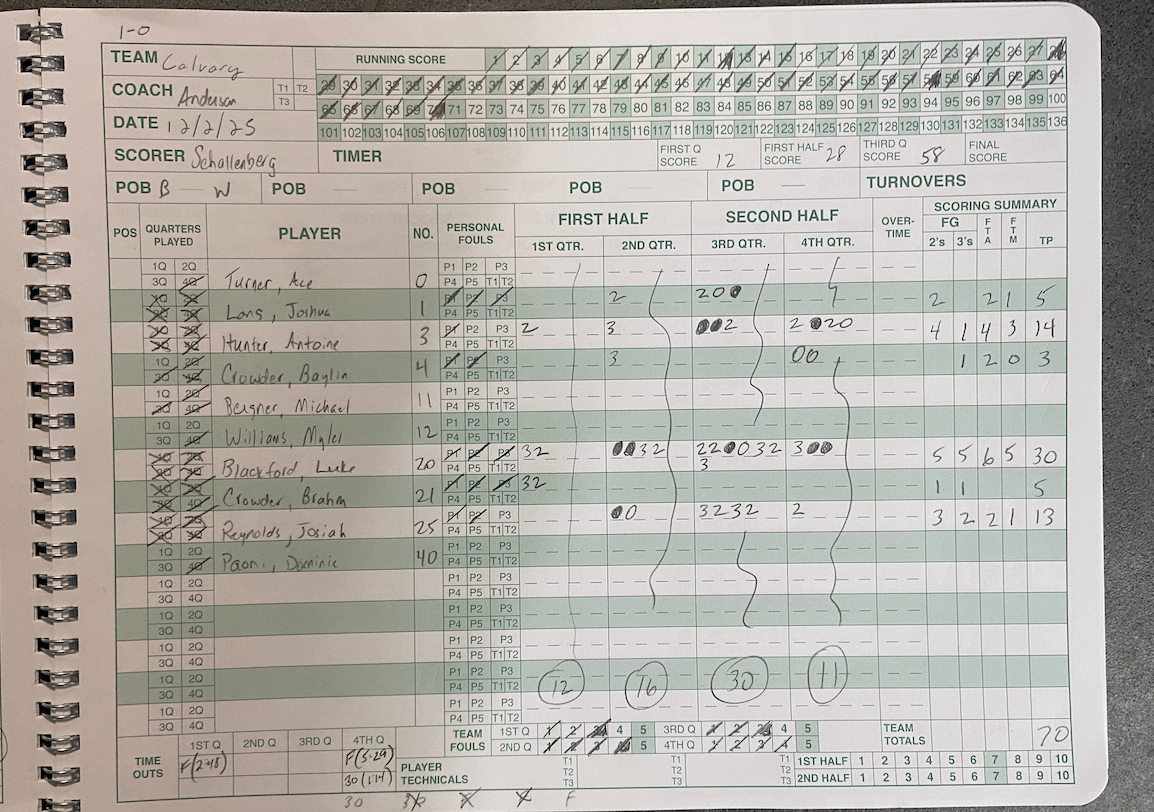 1-0
TEAM Calvary RUNNING SCORE 1 2 3 4 5 6 7 8 9 10 11 13 14 15 16 17 18 19 20 21 22 23 24 25 26 27
COACH Anderson T1 T2 T3 29 30 31 32 33 34 35 36 37 38 39 40 41 42 43 44 45 46 47 48 49 50 51 52 53 54 55 56 57 59 60 61 62 63 64
65 66 67 68 69 71 72 73 74 75 76 77 78 79 80 81 82 83 84 85 86 87 88 89 90 91 92 93 94 95 96 97 98 99 100
DATE 12/2/25 101 102 103 104 105 106 107 108 109 110 111 112 113 114 115 116 117 118 119 120 121 122 123 124 125 126 127 128 129 130 131 132 133 134 135 136
SCORER Schallenberg TIMER FIRST Q SCORE 12 FIRST HALF SCORE 28 THIRD Q SCORE 58 FINAL SCORE
POB B — W POB — POB — POB — POB — TURNOVERS
POS QUARTERS PLAYED PLAYER NO. PERSONAL FOULS FIRST HALF SECOND HALF OVER-TIME SCORING SUMMARY
1ST QTR. 2ND QTR. 3RD QTR. 4TH QTR. FG 2's 3's FTA FTM TP
1Q 2Q 3Q 4Q Turner, Ace 0 P1 P2 P3 P4 P5 T1 T2
1Q 2Q 3Q 4Q Lans, Joshua 1 P1 P2 P3 P4 P5 T1 T2 2 20 2 2 1 5
1Q 2Q 3Q 4Q Hunter, Antoine 3 P1 P2 P3 P4 P5 T1 T2 2 3 2 2 20 4 1 4 3 14
1Q 2Q 3Q 4Q Crowder, Baylin 4 P1 P2 P3 P4 P5 T1 T2 3 00 1 2 0 3
1Q 2Q 3Q 4Q Bergner, Michael 11 P1 P2 P3 P4 P5 T1 T2
1Q 2Q 3Q 4Q Williams, Myles 12 P1 P2 P3 P4 P5 T1 T2
1Q 2Q 3Q 4Q Blackford, Luke 20 P1 P2 P3 P4 P5 T1 T2 32 32 22 032 3 3 5 5 6 5 30
1Q 2Q 3Q 4Q Crowder, Brahm 21 P1 P2 P3 P4 P5 T1 T2 32 1 1 5
1Q 2Q 3Q 4Q Reynolds, Josiah 25 P1 P2 P3 P4 P5 T1 T2 0 3232 2 3 2 2 1 13
1Q 2Q 3Q 4Q Paoni, Dominic 40 P1 P2 P3 P4 P5 T1 T2
1Q 2Q 3Q 4Q P1 P2 P3 P4 P5 T1 T2
1Q 2Q 3Q 4Q P1 P2 P3 P4 P5 T1 T2
1Q 2Q 3Q 4Q P1 P2 P3 P4 P5 T1 T2
1Q 2Q 3Q 4Q P1 P2 P3 P4 P5 T1 T2 12 16 30 11
1Q 2Q 3Q 4Q P1 P2 P3 P4 P5 T1 T2
TIME OUTS 1ST Q 2ND Q 3RD Q 4TH Q TEAM FOULS 1ST Q 1 2 3 4 5 3RD Q 1 2 3 4 5 TEAM TOTALS 70
2ND Q 1 2 3 4 5 4TH Q 1 2 3 4 5
F(2:48) F(5:29) PLAYER TECHNICALS T1 T2 T3 T1 T2 T3 T1 T2 T3 1ST HALF 1 2 3 4 5 6 7 8 9 10
30 (1:14) 2ND HALF 1 2 3 4 5 6 7 8 9 10
30 F